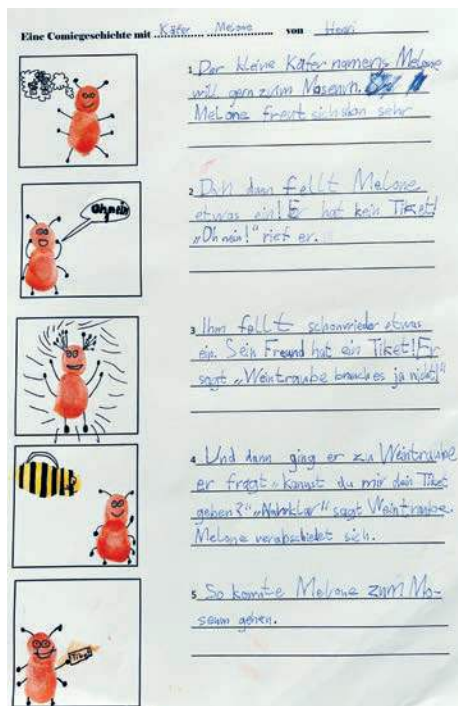 Eine Comicgeschichte mit Käfer Melone von Henri
1 Der kleine Käfer namens Melone
will gern zum Moseum.
Melone freut sich schon sehr
2 Doh dann fellt Melone
etwas ein! Er hat kein Tiket!
„Oh nein!“ rief er.
Oh nein
3 Ihm fellt schonwieder etwas
ein. Sein Freund hat ein Tiket! Er
sagt „Weintraube brauch es ja nicht!“
4 Und dann ging er zu Weintraube
er fragt „kannst du mir dein Tiket
geben?“ „Nahrklar“ sagt Weintraube.
Melone verabschidet sich.
5 So konnte Melone zum Mo-
seum gehen.
Tiket